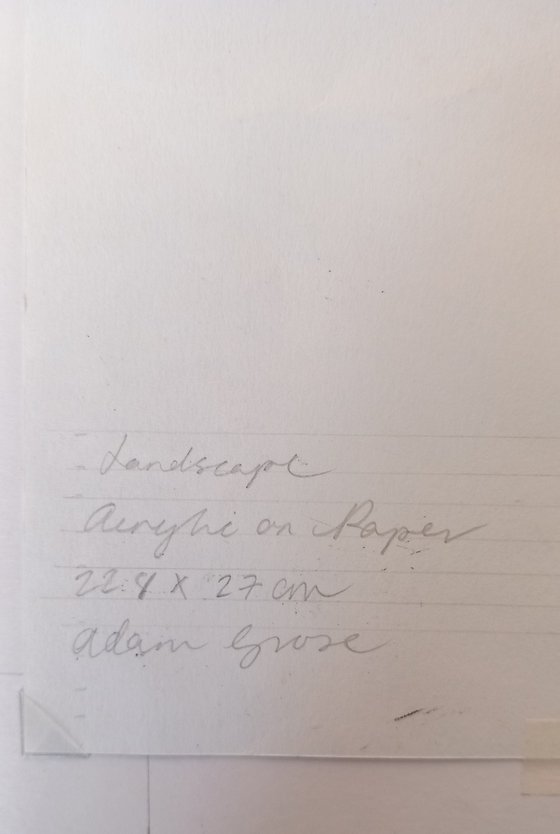 Landscape
Acrylic on Paper
22.8 x 27 cm
Adam Grose